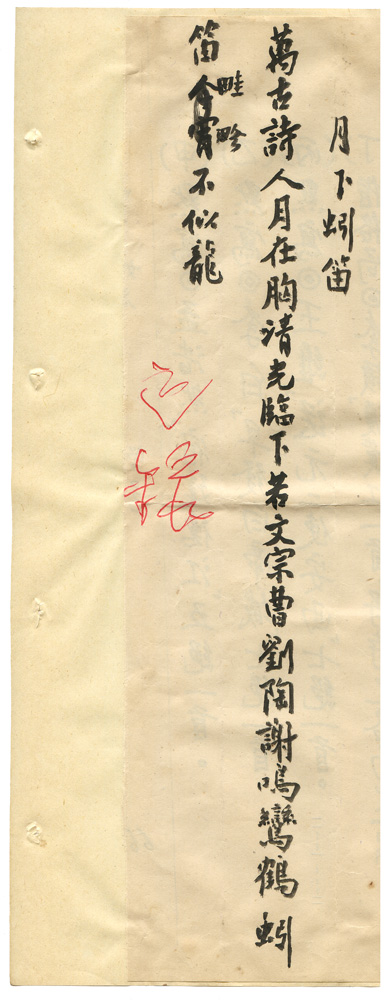 月下蚓笛
萬古詩人月在胸清光臨下若文宗曹劉陶謝鳴鸞鶴蚓
笛畦畛不似龍
已錄